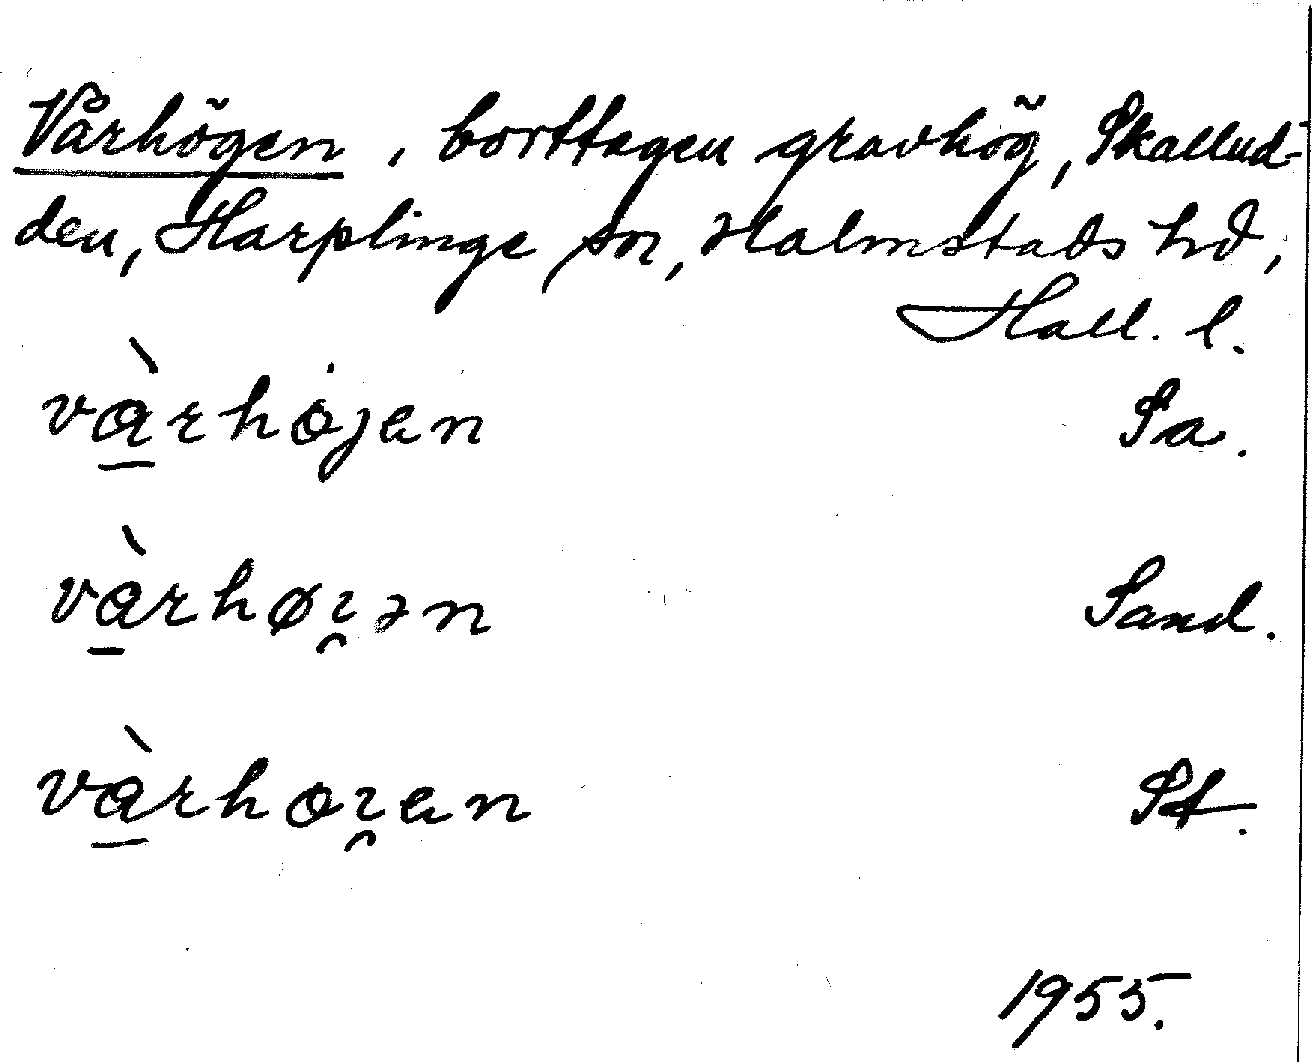 Vårhögen, borttagen gravhög, Skallud-
den, Harplinge sn, Halmstads hd,
Hall. l.
và̱rhöjen Sa.
và̱rhøi̯ən Sand.
và̱rhoi̯en St.
1955.